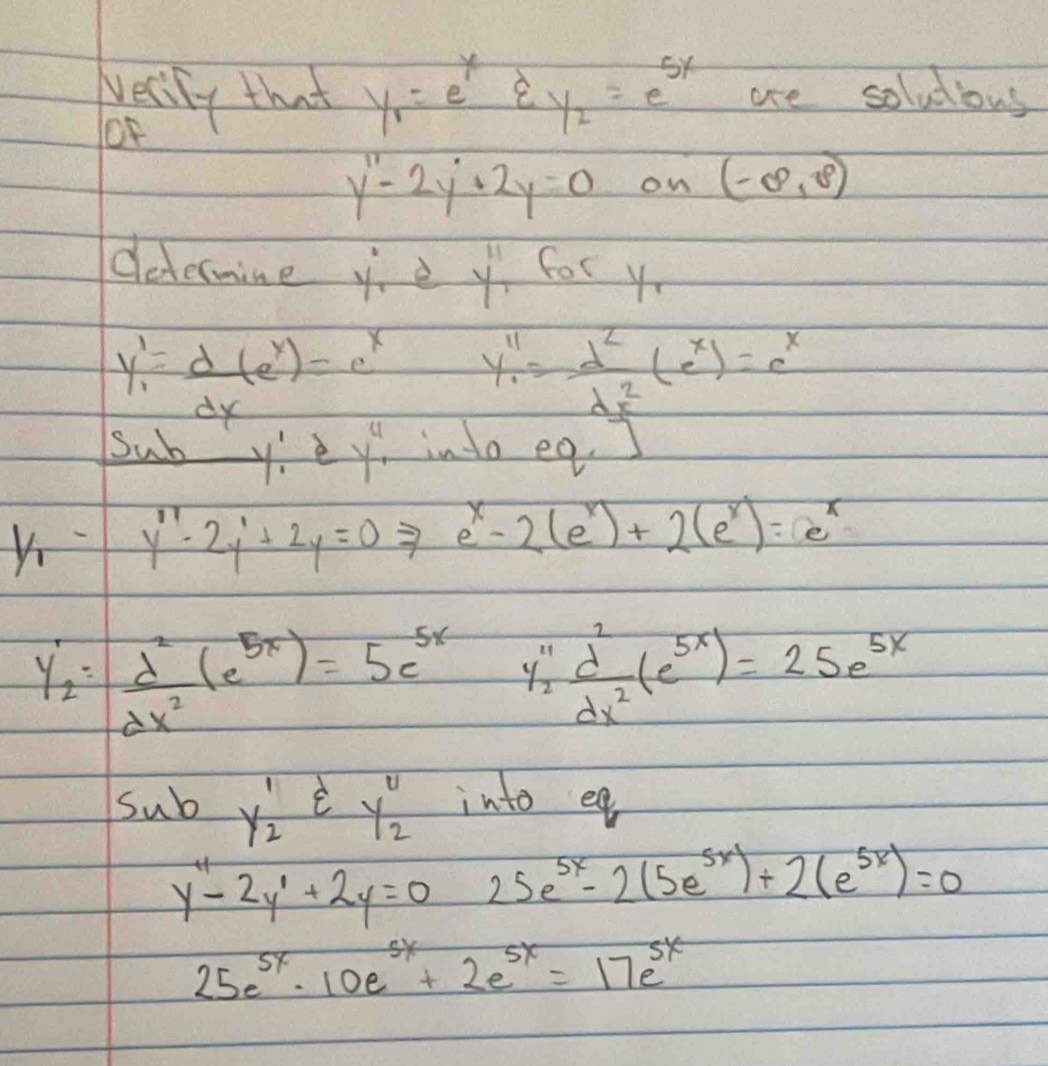 Verify that y₁ = eˣ & y₂ = e⁵ˣ are solutions
OF
y'' - 2y' + 2y = 0 on (-∞, ∞)
determine y₁' & y₁'' for y₁
y₁' = d/dx (eˣ) = eˣ y₁'' = d²/dx² (eˣ) = eˣ
Sub y₁' & y₁'' into eq. ]
y₁ - y'' - 2y' + 2y = 0 ⇒ eˣ - 2(eˣ) + 2(eˣ) = eˣ
y₂' = d²/dx² (e⁵ˣ) = 5e⁵ˣ y₂'' d²/dx² (e⁵ˣ) = 25e⁵ˣ
Sub y₂' & y₂'' into eq
y'' - 2y' + 2y = 0 25e⁵ˣ - 2(5e⁵ˣ) + 2(e⁵ˣ) = 0
25e⁵ˣ - 10e⁵ˣ + 2e⁵ˣ = 17e⁵ˣ